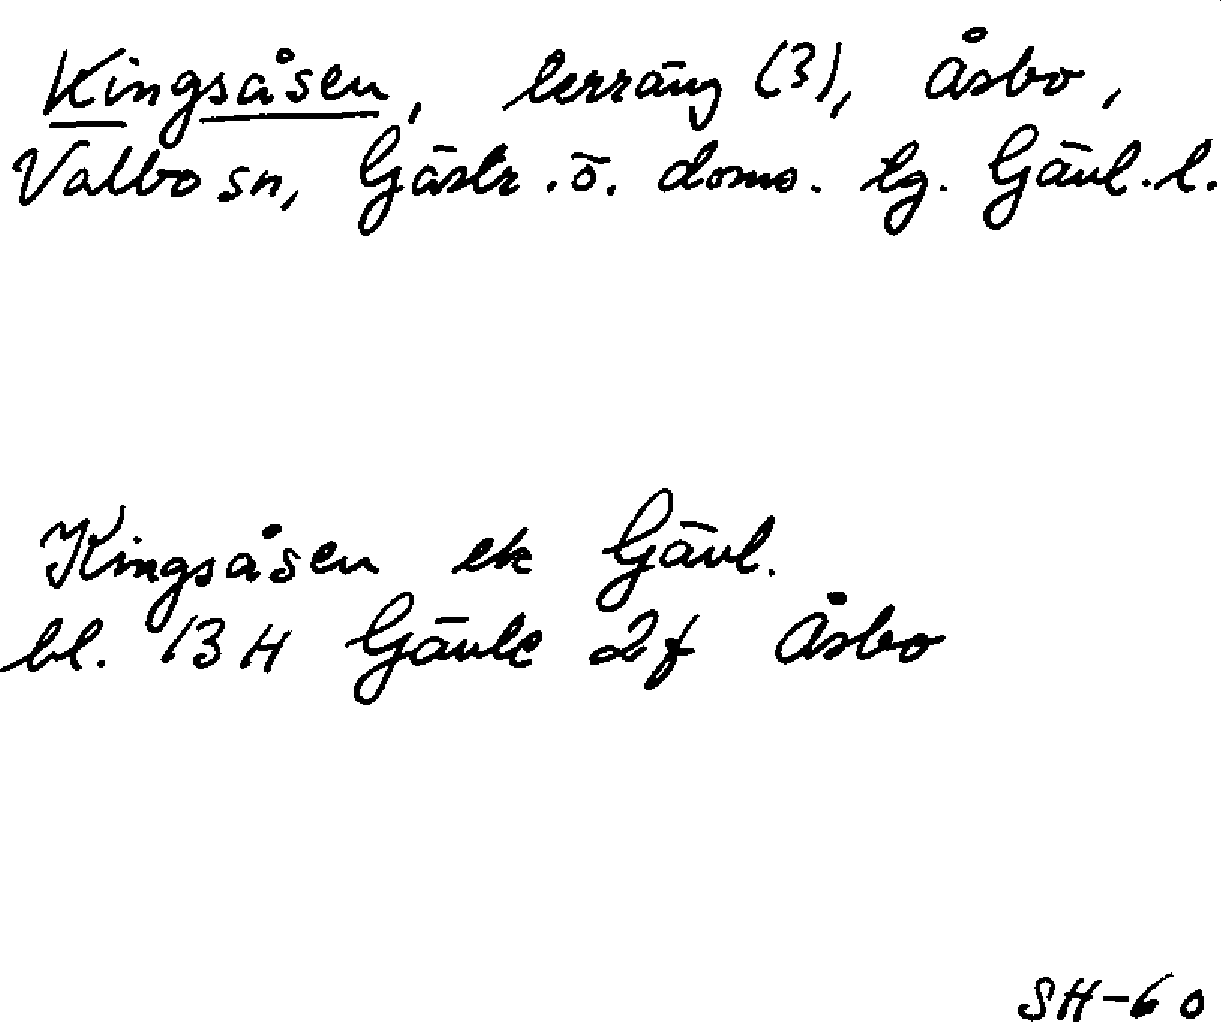 Kingsåsen, terräng (3), Åsbo,
Valbo sn, Gästr. ö. doms. tg. Gävl. l.
Kingsåsen ek Gävl.
bl. 13 H Gävle 2f Åsbo
SH-60